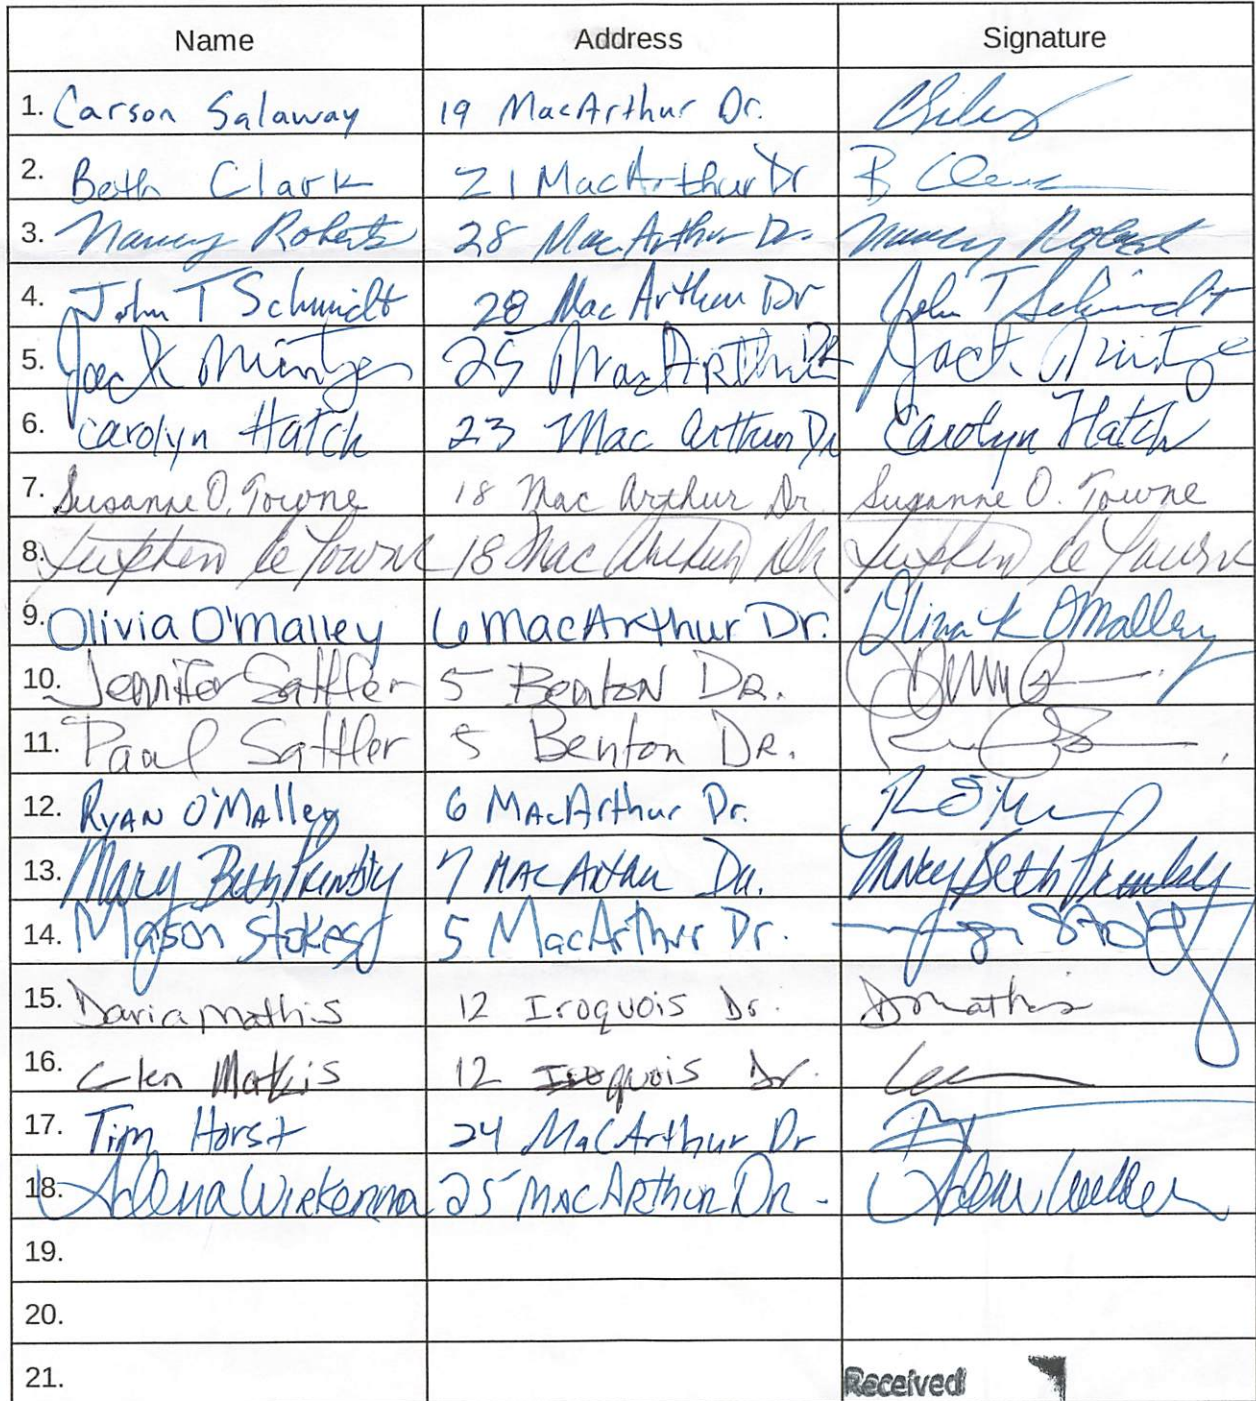 Name Address Signature
1. Carson Salaway 19 MacArthur Dr.
2. Beth Clark 21 MacArthur Dr B Clark
3. Nancy Roberts 28 MacArthur Dr. Nancy Roberts
4. John T Schmidt 28 MacArthur Dr John T Schmidt
5. Jack Mintzer 25 MacArthur DR Jack Mintze
6. Carolyn Hatch 23 Mac Arthur Dr Carolyn Hatch
7. Susanne O. Towne 18 Mac Arthur Dr. Susanne O. Towne
8. 18 Mac Arthur Dr
9. Olivia O'Malley 6 MacArthur Dr. Olivia K O'Malley
10. Jennifer Sattler 5 Benton DR.
11. Paul Sattler 5 Benton DR.
12. RYAN O'MAlley 6 MAcArthur Dr.
13. Mary Beth 7 MAC Arthur Dr. Mary Beth
14. Mason Stokes 5 MacArthur Dr.
15. Daria Mathis 12 Iroquois Dr. D Mathis
16. Glen Mathis 12 Iroquois Dr.
17. Tim Horst 24 MacArthur Dr
18. 25 MacArthur Dr.
19.
20.
21. Received